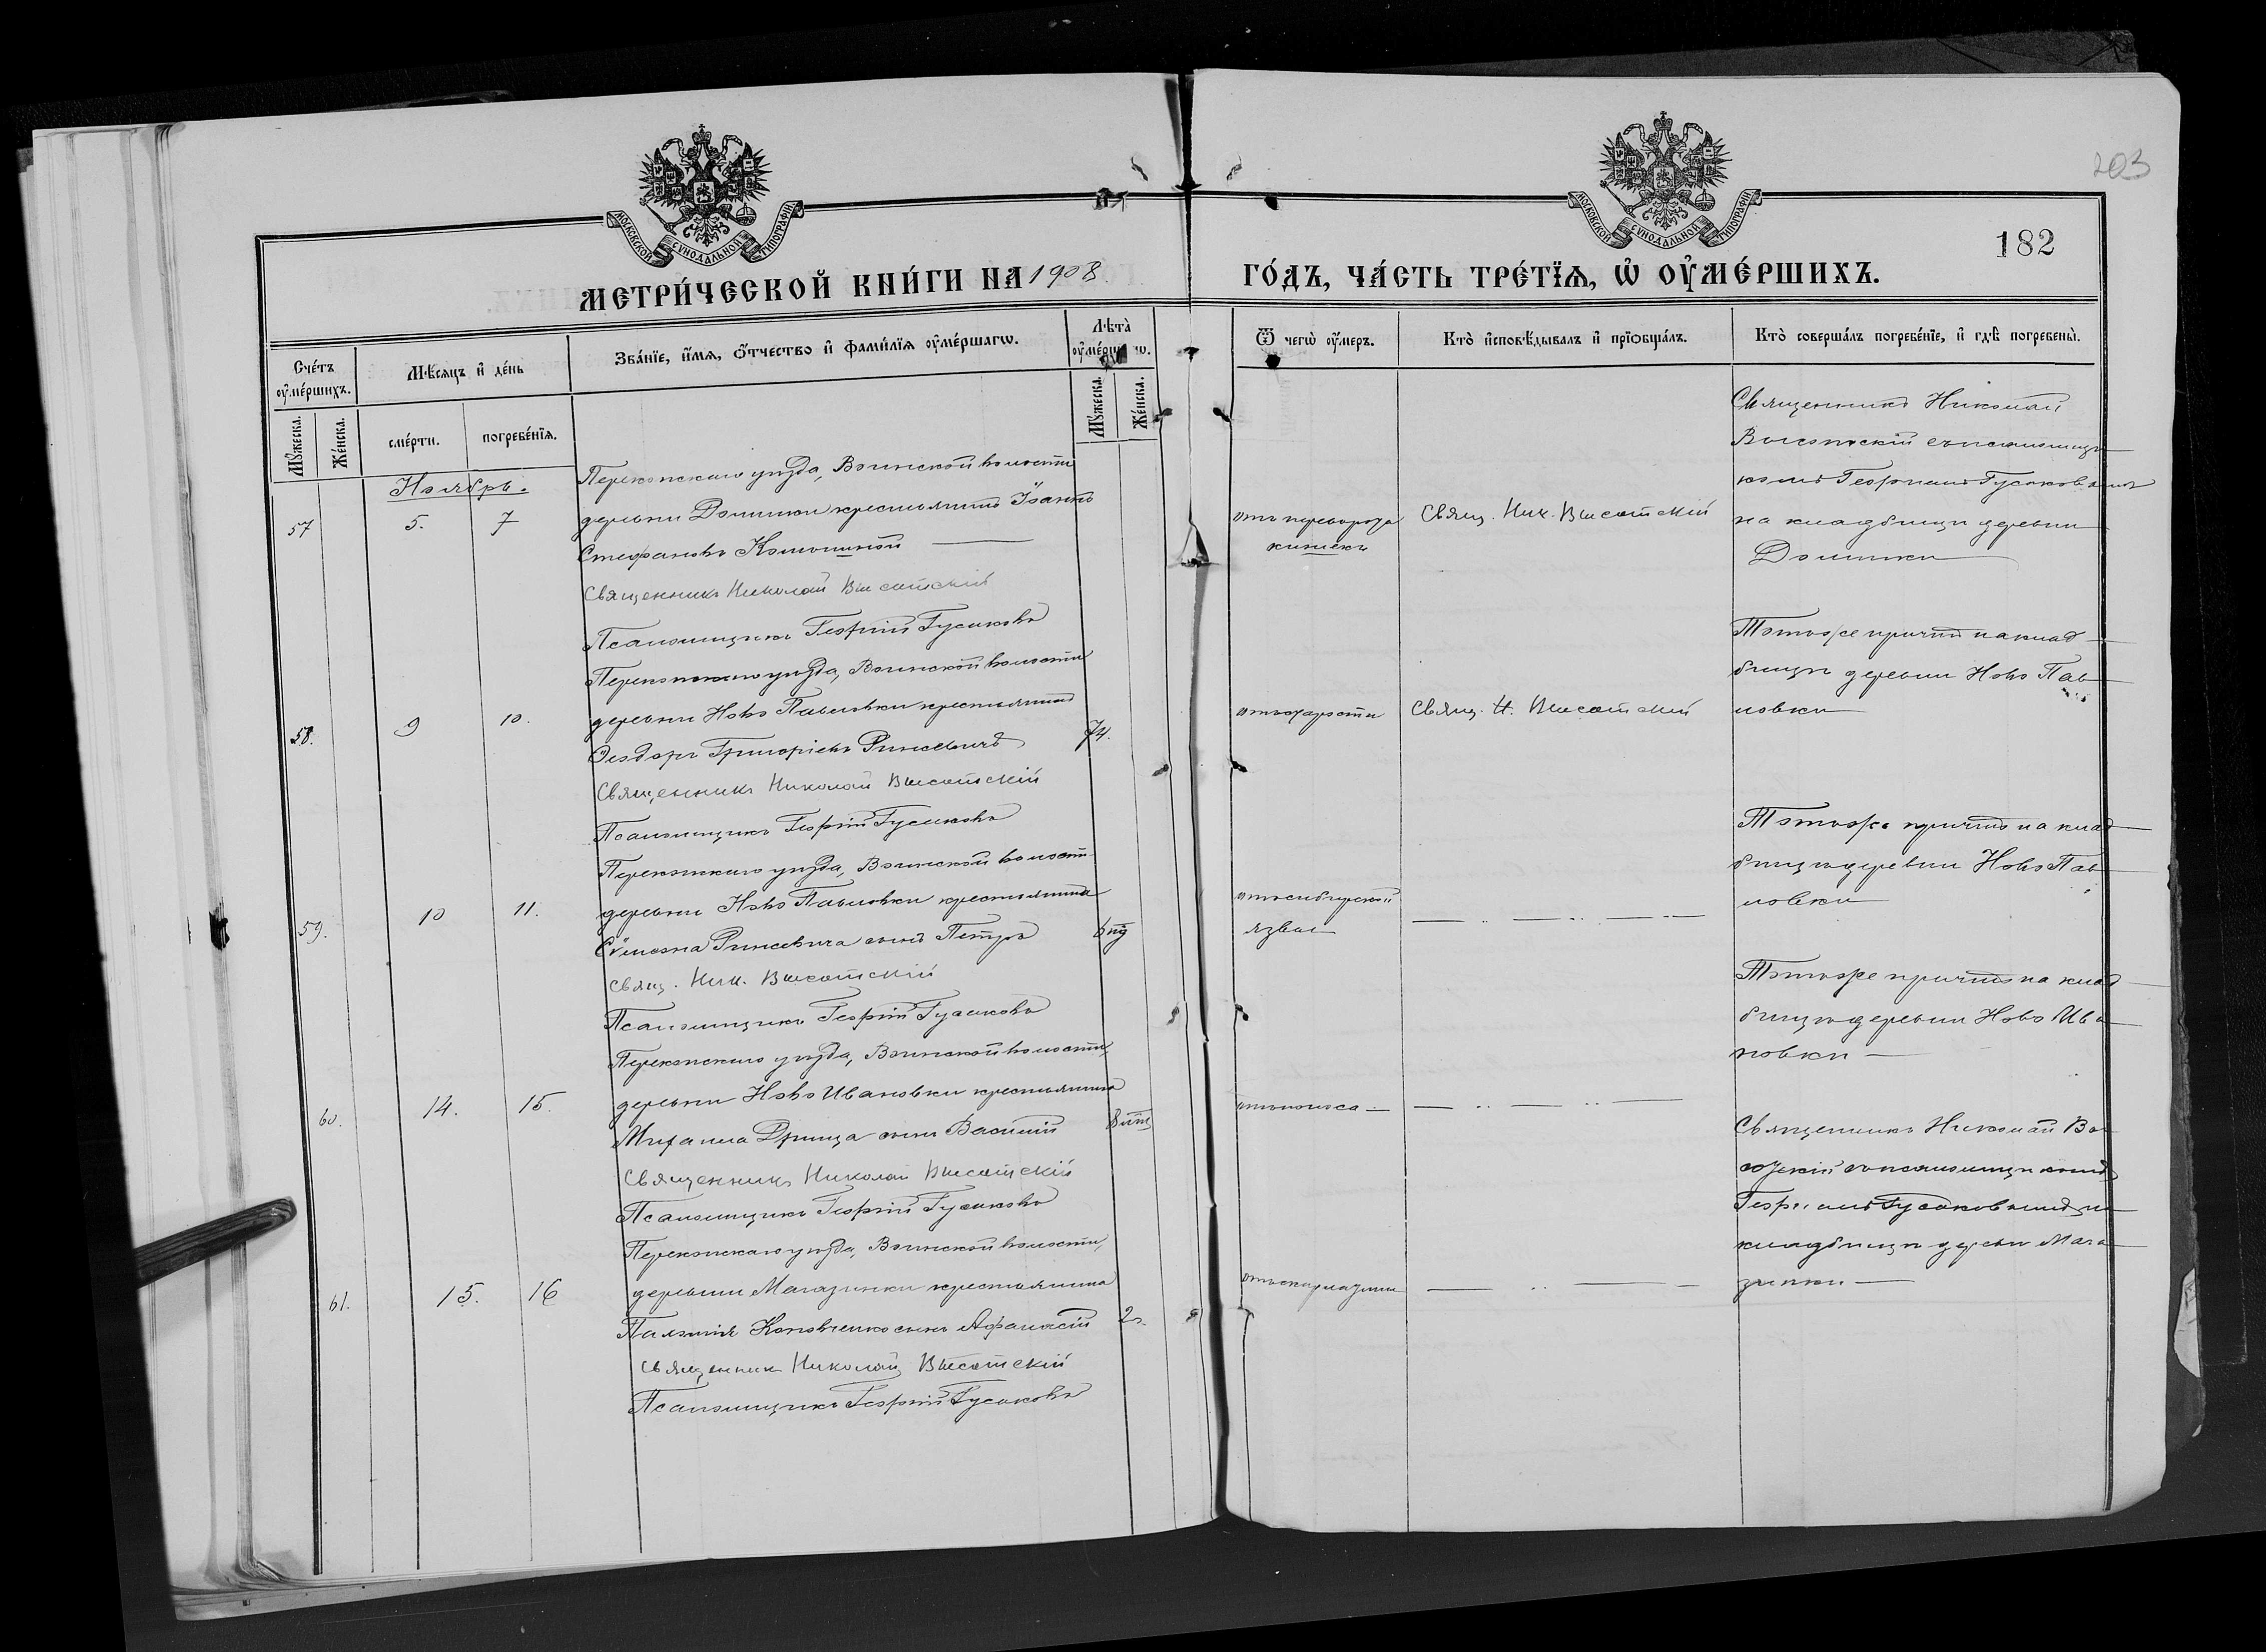 203
182
МОСКОВСКОЙ СѴНОДАЛЬНОЙ ТИПОГРАФІИ
МОСКОВСКОЙ СѴНОДАЛЬНОЙ ТИПОГРАФІИ
МЕТРИ́ЧЕСКОЙ КНИ́ГИ НА 1908
ГО́ДЪ, ЧА́СТЬ ТРЕ́ТЇѦ, Ѡ҆ ОУ҆МЕ́РШИХЪ.
Сче́тъ оу҆ме́ршихъ.
Мѣ́сяцъ и҆ де́нь
Зва́нїе, и҆́мя, ѻ҆́тчество и҆ фами́лїя оу҆ме́ршагѡ.
Лѣта̀ оу҆ме́ршагѡ.
Мꙋ́жеска.
Же́нска.
сме́рти.
погребе́нїя.
Мꙋ́жеска.
Же́нска.
Ѿ чегѡ̀ оу҆́меръ.
Кто̀ и҆сповѣ́дывалъ и҆ прїѡбща́лъ.
Кто̀ соверша́лъ погребе́нїе, и҆ гдѣ̀ погребены̀.
Ноябрь.
57
5.
7
Перекопскаго уѣзда, Воинской волости
деревни Долинки крестьянинъ Іоаннъ
Стефановъ
Священникъ Николай Высотскій
Псаломщикъ Георгій Гусаковъ
отъ переворота
кишекъ
Свящ. Ник. Высотскій
Священникъ Николай
Высотскій съ псаломщи
комъ Георгіемъ Гусаковымъ
на кладбищѣ деревни
Долинки
58.
9
10.
Перекопскаго уѣзда, Воинской волости
деревни Ново Павловки крестьянинъ
Ѳеодоръ Григоріевъ Ринсевичъ
74.
Священникъ Николай Высотскій
Псаломщикъ Георгій Гусаковъ
отъ старости
Свящ. Н. Высотскій
Тотъ же причтъ на клад
бищѣ деревни Ново Пав
ловки
59.
10
11.
Перекопскаго уѣзда, Воинской волости
деревни Ново Павловки крестьянина
Сѵмеона Ринсевича сынъ Петръ
6 нд
Свящ. Ник. Высотскій
Псаломщикъ Георгій Гусаковъ
отъ сибирской
язвы
Тотъ же причтъ на клад
бищѣ деревни Ново Пав
ловки
60.
14.
15.
Перекопскаго уѣзда, Воинской волости,
деревни Ново Ивановки крестьянина
Михаила Дрища сынъ Василій
8
Священникъ Николай Высотскій
Псаломщикъ Георгій Гусаковъ
отъ поноса
Тотъ же причтъ на клад
бищѣ деревни Ново Ива
новки
61.
15.
16
Перекопскаго уѣзда, Воинской волости,
деревни Магазинки крестьянина
Коновченко сынъ Афанасій
2 г.
Священникъ Николай Высотскій
Псаломщикъ Георгій Гусаковъ
отъ скарлатины
Священникъ Николай Вы
сотскій съ псаломщикомъ
Георгіемъ Гусаковымъ на
кладбищѣ деревни Мага
зинки